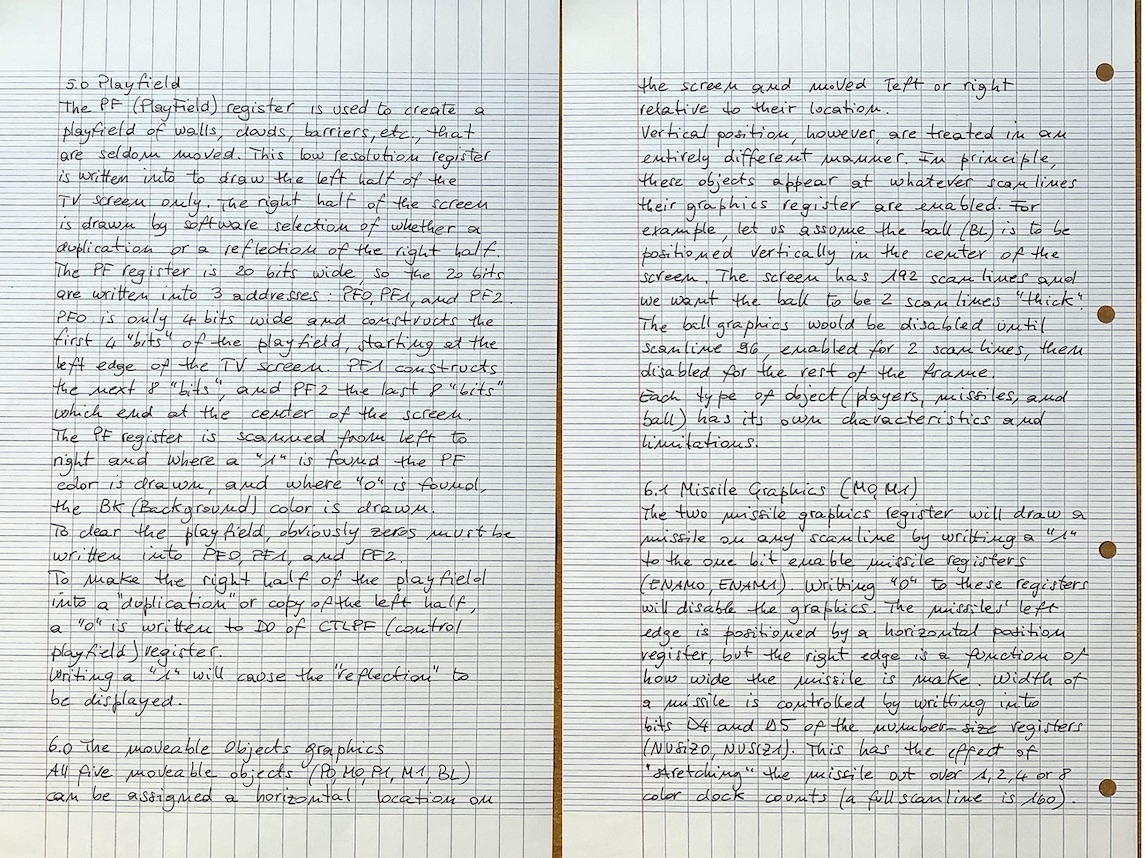 5.0 Playfield
The PF (Playfield) register is used to create a
playfield of walls, clouds, barriers, etc., that
are seldom moved. This low resolution register
is written into to draw the left half of the
TV screen only. The right half of the screen
is drawn by software selection of whether a
duplication or a reflection of the right half.
The PF register is 20 bits wide, so the 20 bits
are written into 3 addresses: PF0, PF1, and PF2.
PF0 is only 4 bits wide and constructs the
first 4 "bits" of the playfield, starting at the
left edge of the TV screen. PF1 constructs
the next 8 "bits", and PF2 the last 8 "bits"
which end at the center of the screen.
The PF register is scanned from left to
right and where a "1" is found the PF
color is drawn, and where "0" is found,
the BK (Background) color is drawn.
To clear the playfield, obviously zeros must be
written into PF0, PF1, and PF2.
To make the right half of the playfield
into a "duplication" or copy of the left half,
a "0" is written to D0 of CTLPF (control
playfield) register.
Writing a "1" will cause the "reflection" to
be displayed.
6.0 The moveable Objects graphics
All five moveable objects (P0, M0, P1, M1, BL)
can be assigned a horizontal location on
the screen and moved left or right
relative to their location.
Vertical position, however, are treated in an
entirely different manner. In principle,
these objects appear at whatever scan lines
their graphics register are enabled. For
example, let us assume the ball (BL) is to be
positioned vertically in the center of the
screen. The screen has 192 scan lines and
we want the ball to be 2 scan lines "thick".
The ball graphics would be disabled until
scanline 96, enabled for 2 scan lines, then
disabled for the rest of the frame.
Each type of object (players, missiles, and
ball) has its own characteristics and
limitations.
6.1 Missile Graphics (M0, M1)
The two missile graphics register will draw a
missile on any scanline by writting a "1"
to the one bit enable missile registers
(ENAM0, ENAM1). Writting "0" to these registers
will disable the graphics. The missiles' left
edge is positioned by a horizontal position
register, but the right edge is a function of
how wide the missile is make. Width of
a missile is controlled by writting into
bits D4 and D5 of the number-size registers
(NUSIZ0, NUSIZ1). This has the effect of
"stretching" the missile out over 1, 2, 4 or 8
color clock counts (a full scanline is 160).